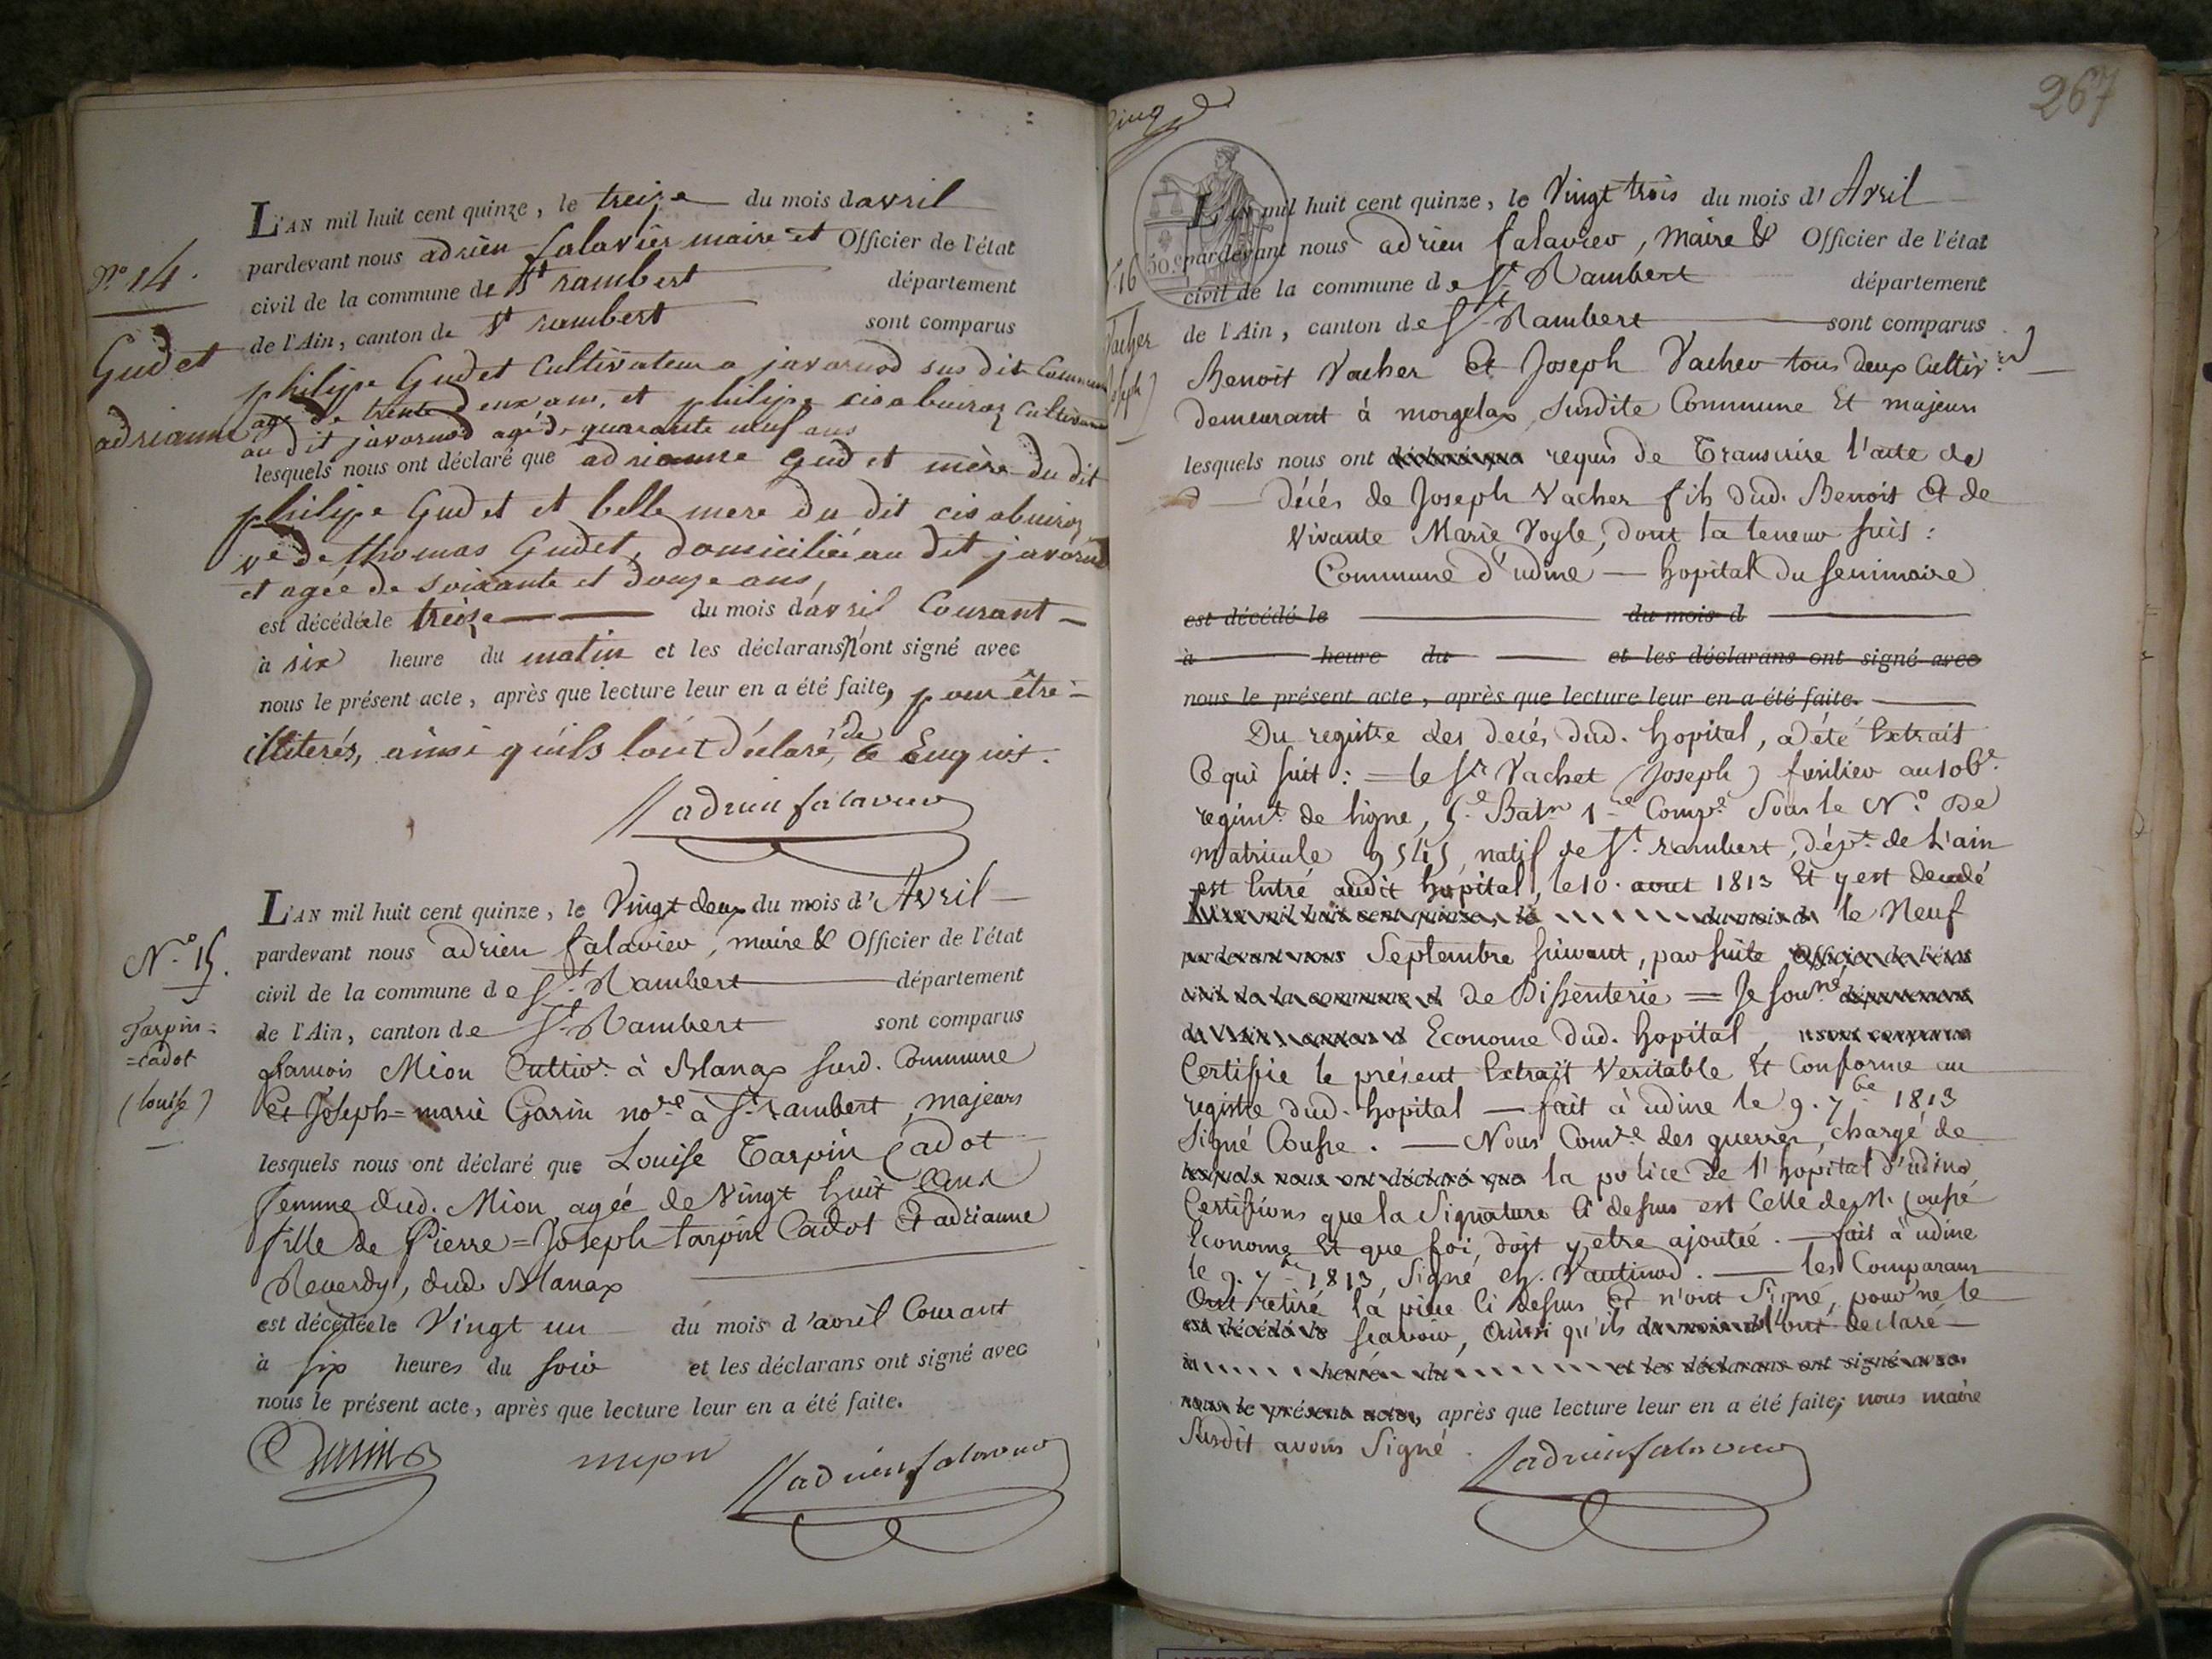 N.º 14.
Gudet
adrianne
L'AN mil huit cent quinze, le treize du mois d avril
pardevant nous adrien falavier maire et Officier de l'état
civil de la commune de St rambert département
de l'Ain, canton de St rambert sont comparus
philipe Gudet Cultivateur a javornod sus dit Commune
agé de trente deux ans, et philipe Cultivateur
au dit javornod agé de quarante neuf ans
lesquels nous ont déclaré que adrianne gudet mère du dit
philipe Gudet et belle mere du dit
ve de thomas Gudet, domiciliée au dit javornod
et agée de soixante et douze ans,
est décédée le treize du mois d'avril Courant
à six heure du matin et les déclarans n'ont signé avec
nous le présent acte, après que lecture leur en a été faite, pour être
illiterés, ainsi qu'ils l'ont déclaré, de ce Enquis.
adrien falavier
N.º 15.
Tarpin=
=cadot
(louise)
L'AN mil huit cent quinze, le Vingt deux du mois d'Avril
pardevant nous adrien falavier, maire & Officier de l'état
civil de la commune de St Rambert département
de l'Ain, canton de St Rambert sont comparus
francois Mion Cultivr. à Blanax susd. Commune
Et Joseph=marie Garin nore à St rambert, majeurs
lesquels nous ont déclaré que Louise Tarpin Cadot
femme dud. Mion agée de Vingt huit ans
fille de Pierre=Joseph tarpin Cadot Et adrianne
Reverdy, dud. Blanax
est décédée le Vingt un du mois d'avril Courant
à six heures du soir et les déclarans ont signé avec
nous le présent acte, après que lecture leur en a été faite.
Garin mion adrien falavier
267
50
16
Vacher
Joseph)
L'AN mil huit cent quinze, le Vingt trois du mois d'Avril
pardevant nous adrien falavier, Maire & Officier de l'état
civil de la commune de St Rambert département
de l'Ain, canton de St Rambert sont comparus
Benoit Vacher Et Joseph Vacher tous deux Cultivrs
demeurant à morgelax susdite Commune Et majeurs
lesquels nous ont déclaré que requis de Transcrire l'acte de
décés de Joseph Vacher fils dud. Benoit Et de
Vivante Marie Vogle, dont la teneur suit:
Commune d'udine — hopital du seminaire
est décédé le du mois d
à heure du et les déclarans ont signé avec
nous le présent acte, après que lecture leur en a été faite.
Du registre des decés dud. hopital, a été Extrait
Ce qui suit: = le Sr Vachet (Joseph) fusilier au 106e.
regimt de ligne, 5e Batn 1re Compe Sous le N.º De
matricule 9545, natif de St. rambert, dépt. de L'ain
est Entré audit hopital, le 10. aout 1813 Et y est decedé
L'an mil huit cent quinze, le du mois d le Neuf
pardevant nous Septembre suivant, par suite Officier de l'état
civil de la commune d de Dissenterie = Je sousné département
de l'Ain, canton d Econome dud. hopital, sont comparus
Certifie le présent Extrait Veritable Et Conforme au
registre dud. hopital — fait à udine le 9. 7bre 1813
Signé Coupe. — Nous Comre des guerres, chargé de
lesquels nous ont déclaré que la police de l'hopital d'udine
Certifions que la Signature Ci dessus est Celle de M. Coupé
Econome Et que foi, doit y être ajoutée. — fait à udine
le 9. 7bre 1813, Signé, ch. Vautinod. — les Comparans
Ont retiré la piece Ci dessus Et n'ont Signé, pour ne le
est décédé le scavoir, Ainsi qu'ils du mois d l'ont declaré
à heure du et les déclarans ont signé avec
nous le présent acte, après que lecture leur en a été faite, nous maire
Susdit avons Signé.
adrien falavier